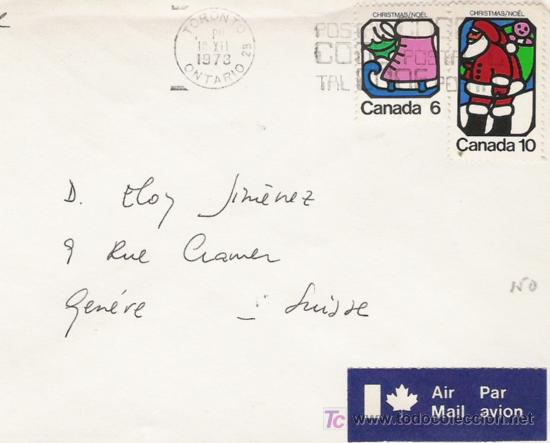 TORONTO
PM
18 XII
1973
ONTARIO
29
POSTAL CODE
CODE POSTAL
CHRISTMAS/NOËL
Canada 6
CHRISTMAS/NOËL
Canada 10
D. Eloy Jiménez
9 Rue Cramer
Genéve - Suisse
150
Air Par
Mail avion
TC www.todocoleccion.net